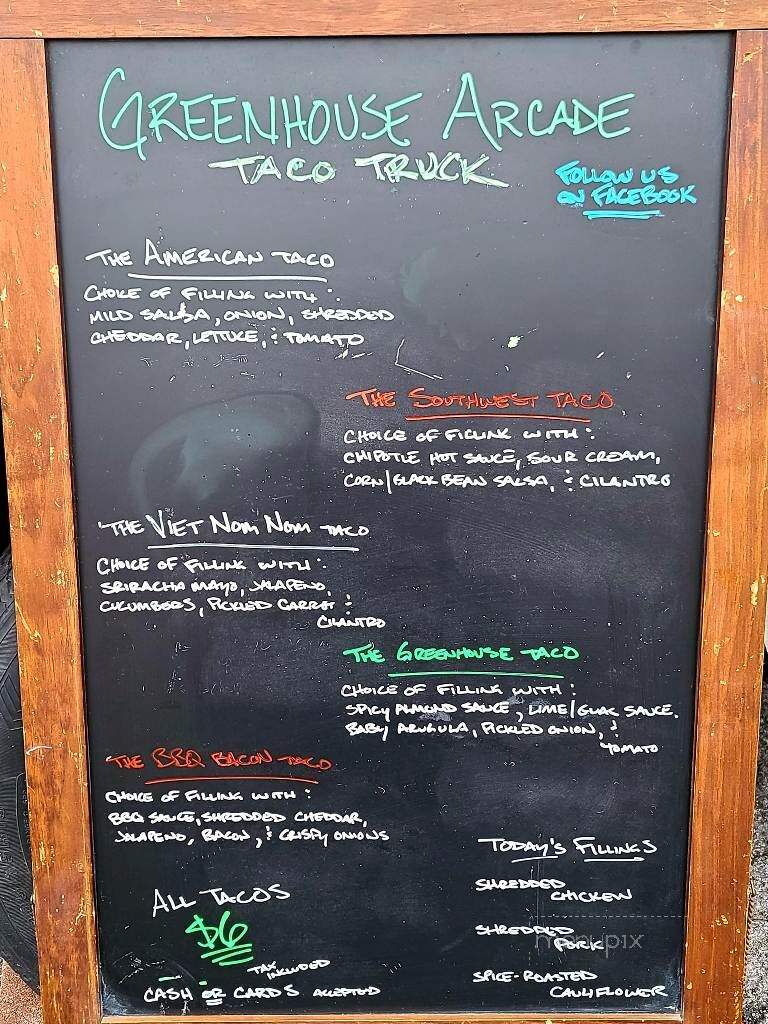 GREENHOUSE ARCADE
TACO TRUCK
FOLLOW US
ON FACEBOOK
THE AMERICAN TACO
CHOICE OF FILLING WITH:
MILD SALSA, ONION, SHREDDED
CHEDDAR, LETTUCE, & TOMATO
THE SOUTHWEST TACO
CHOICE OF FILLING WITH:
CHIPOTLE HOT SAUCE, SOUR CREAM,
CORN/BLACK BEAN SALSA, & CILANTRO
THE VIET NOM NOM TACO
CHOICE OF FILLING WITH:
SRIRACHA MAYO, JALAPENO,
CUCUMBERS, PICKLED CARROT &
CILANTRO
THE GREENHOUSE TACO
CHOICE OF FILLING WITH:
SPICY ALMOND SAUCE, LIME/GUAC SAUCE,
BABY ARUGULA, PICKLED ONION, &
TOMATO
THE BBQ BACON TACO
CHOICE OF FILLING WITH:
BBQ SAUCE, SHREDDED CHEDDAR,
JALAPENO, BACON, & CRISPY ONIONS
TODAY'S FILLINGS
SHREDDED
CHICKEN
SHREDDED
PORK
SPICE-ROASTED
CAULIFLOWER
ALL TACOS
$6
TAX
INCLUDED
CASH OR CARDS ACCEPTED
menupix